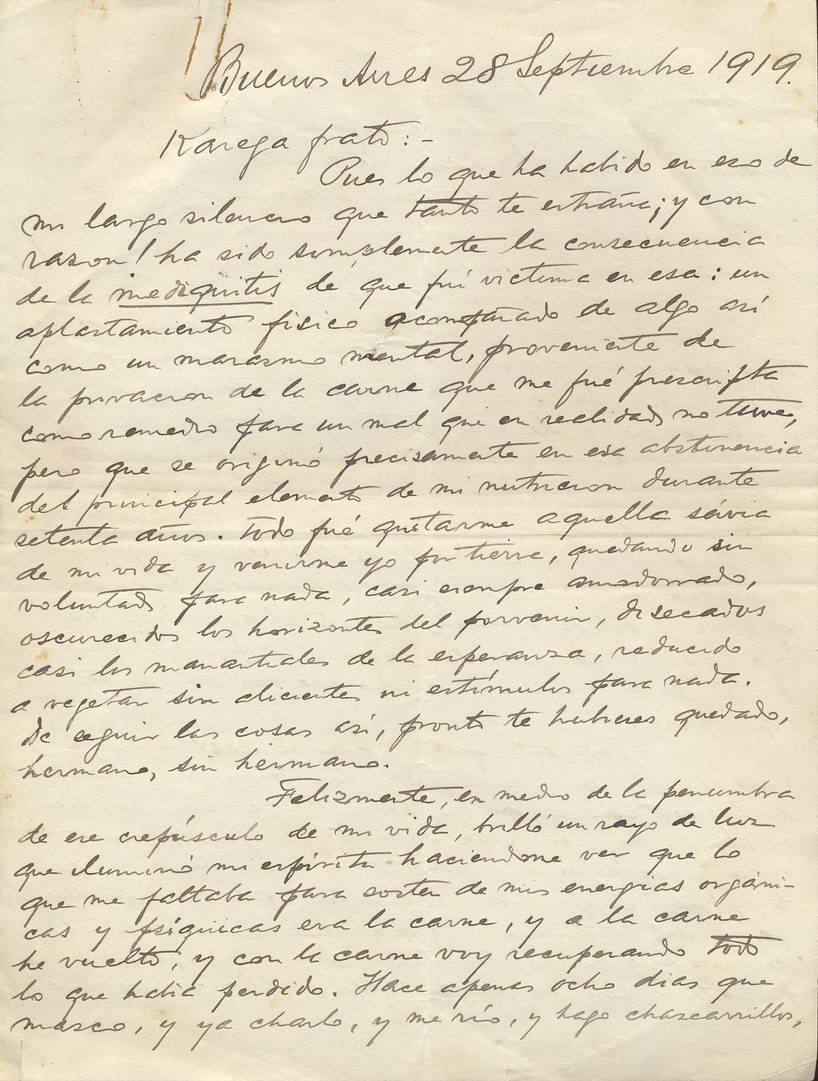 Buenos Aires 28 Septiembre 1919.
Karega frato:-
Pues lo que ha habido en eso de
mi largo silencio que tanto te extraña; y con
razon! ha sido simplemente la consecuencia
de la mediquitis de que fuí victima en esa: un
aplastamiento físico acompañado de algo así
como un marasmo mental, proveniente de
la privacion de la carne que me fué prescripta
como remedio para un mal que en realidad no tuve,
pero que se originó precisamente en esa abstinencia
del principal elemento de mi nutricion durante
setenta años. Todo fué quitarme aquella sávia
de mi vida y venirme yo por tierra, quedando sin
voluntad para nada, casi siempre amodorrado,
oscurecidos los horizontes del porvenir, disecados
casi los manantiales de la esperanza, reducido
a vegetar sin alicientes ni estímulos para nada.
De seguir las cosas así, pronto te hubieres quedado,
hermano, sin hermano.
Felizmente, en medio de la penumbra
de ese crepúsculo de mi vida, brilló un rayo de luz
que iluminó mi espíritu haciendome ver que lo
que me faltaba para sosten de mis energias orgáni-
cas y psíquicas era la carne, y a la carne
he vuelto, y con la carne voy recuperando todo
lo que habia perdido. Hace apenas ocho dias que
masco, y ya charlo, y me río, y hago chascarrillos,